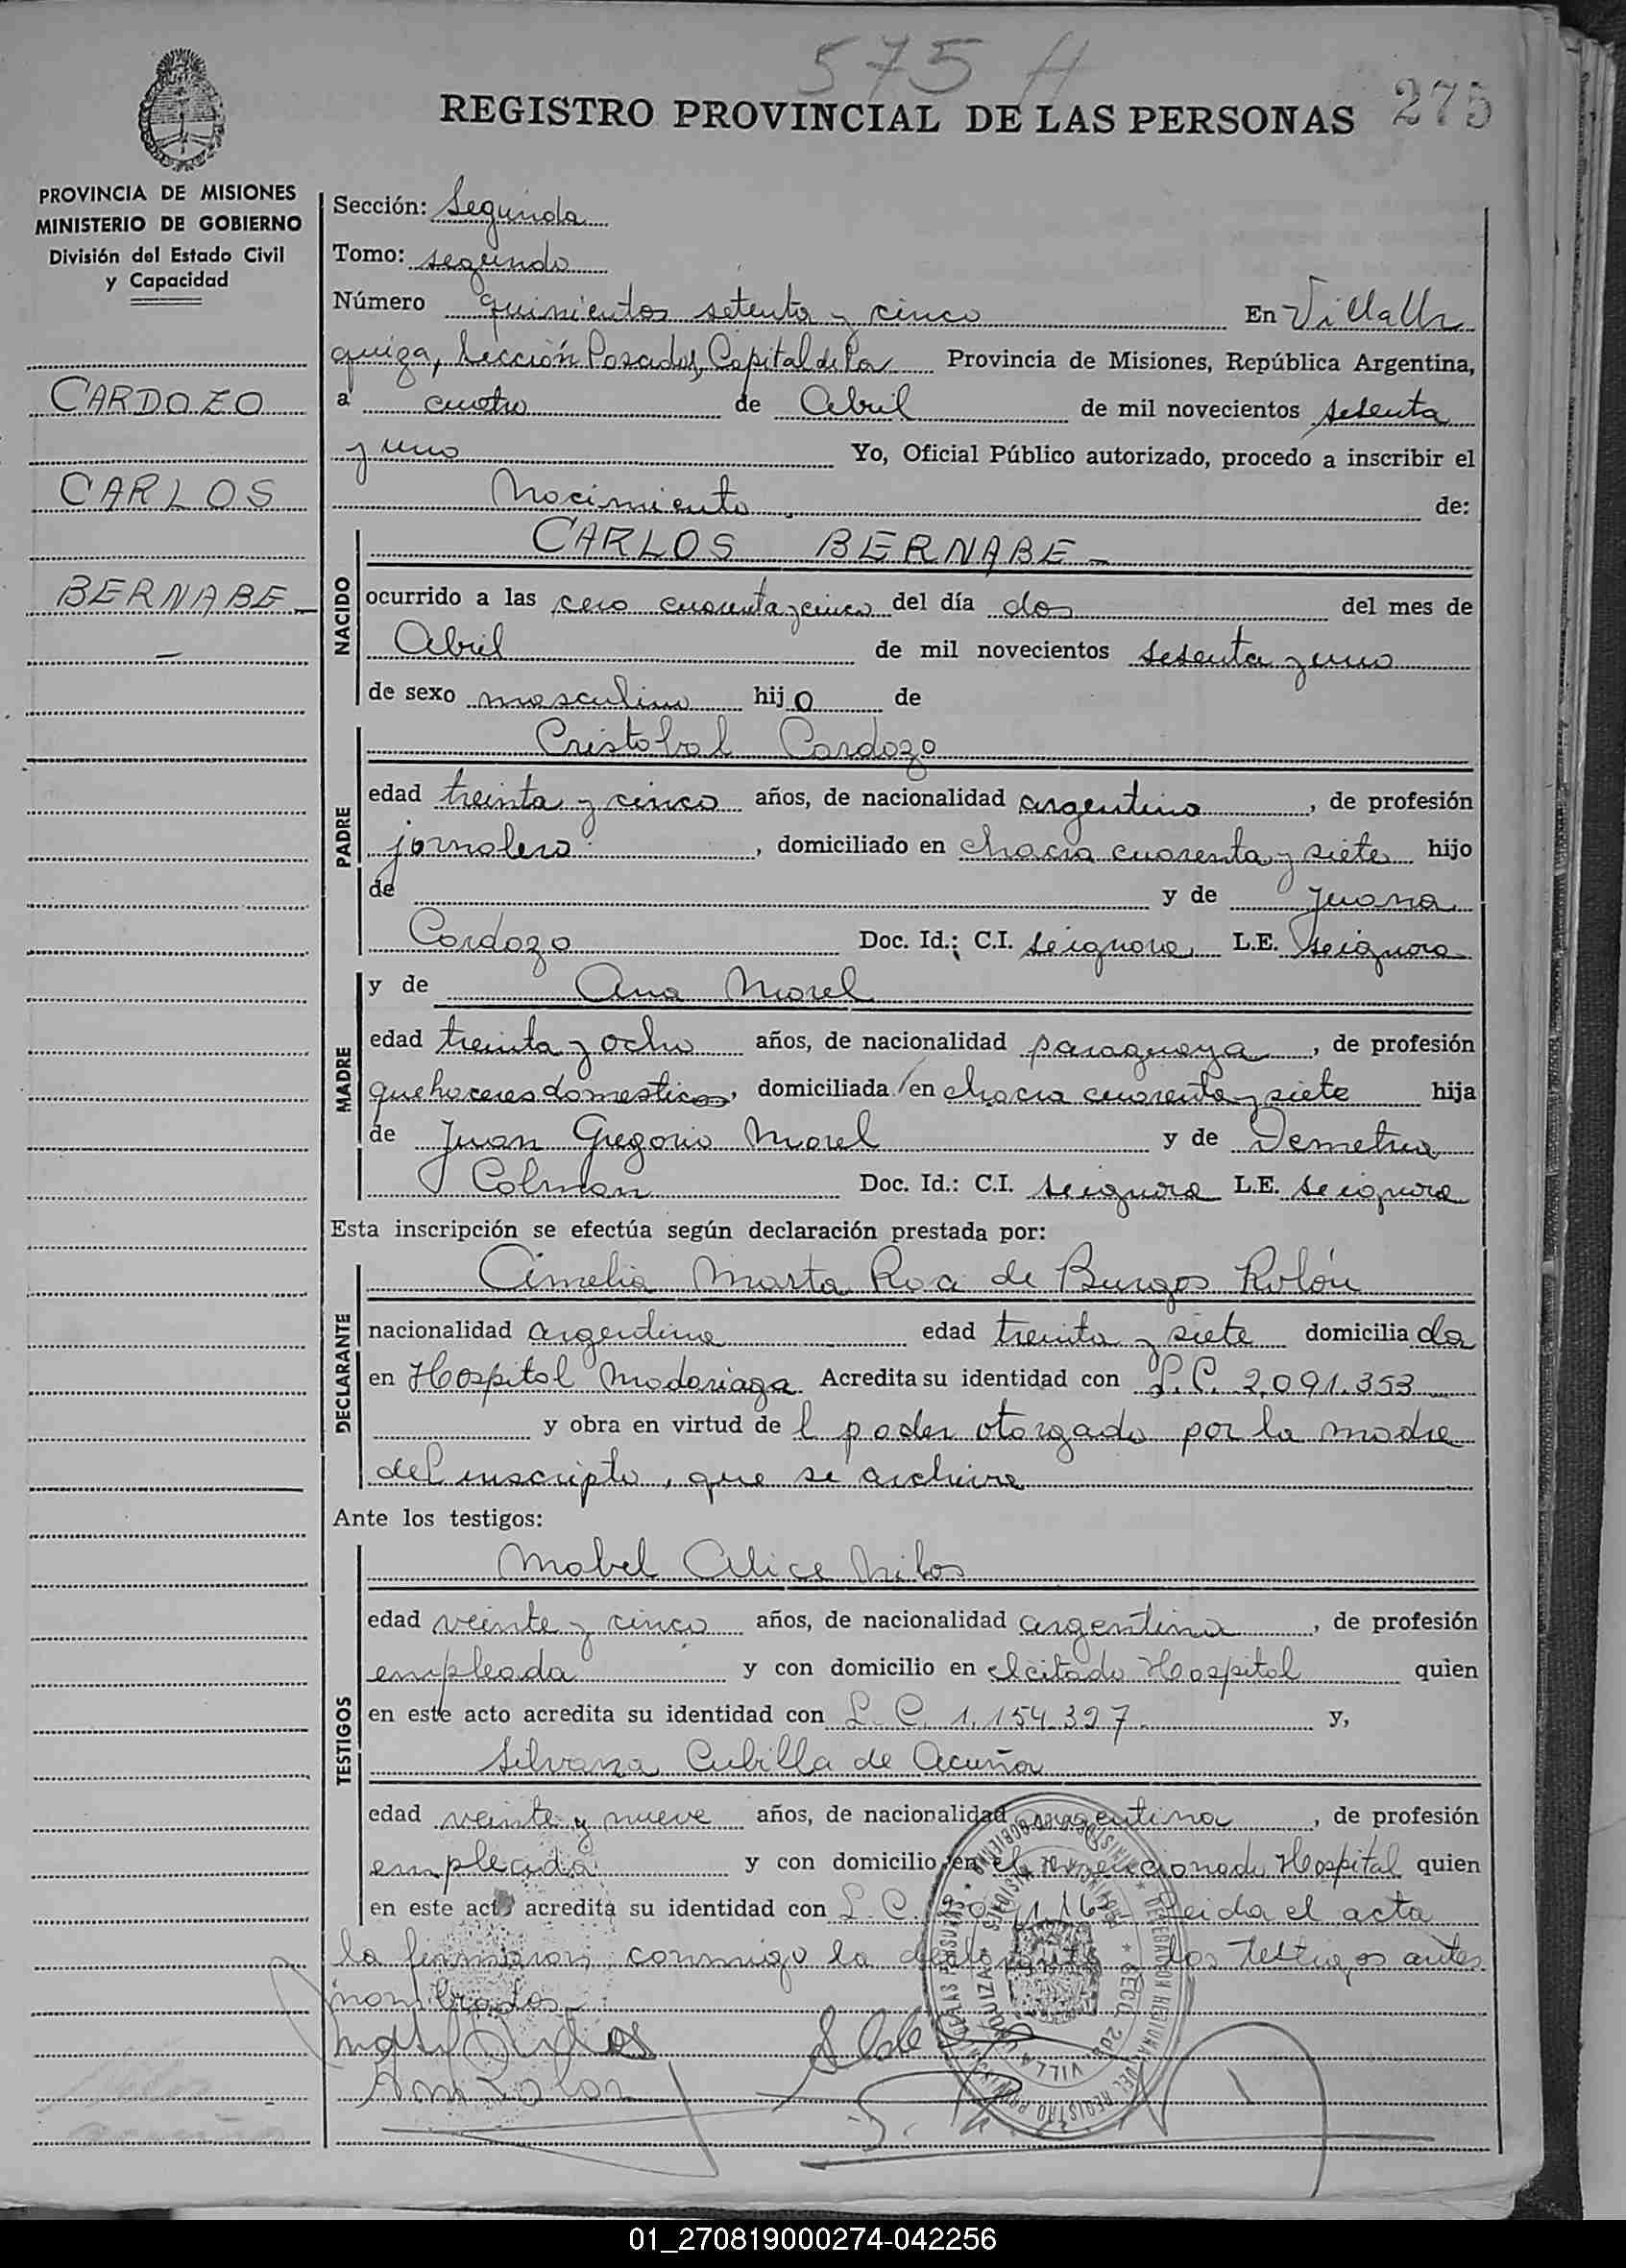 575 H
REGISTRO PROVINCIAL DE LAS PERSONAS 275
PROVINCIA DE MISIONES
MINISTERIO DE GOBIERNO
División del Estado Civil
y Capacidad
CARDOZO
CARLOS
BERNABE -
Sección: Segunda
Tomo: segundo
Número quinientos setenta y cinco En Villa Ur
quiza, Sección Posadas, Capital de la Provincia de Misiones, República Argentina,
a cuatro de Abril de mil novecientos setenta
y uno Yo, Oficial Público autorizado, procedo a inscribir el
Nacimiento de:
NACIDO
CARLOS BERNABE -
ocurrido a las cero cuarenta y cinco del día dos del mes de
Abril de mil novecientos setenta y uno
de sexo masculino hijo de
PADRE
Cristobal Cardozo
edad treinta y cinco años, de nacionalidad argentino, de profesión
jornalero, domiciliado en chacra cuarenta y siete hijo
de y de Juana
Cardozo Doc. Id.: C.I. se ignora L.E. se ignora
MADRE
y de Ana Morel
edad treinta y ocho años, de nacionalidad paraguaya, de profesión
quehaceres domesticos, domiciliada en chacra cuarenta y siete hija
de Juan Gregorio Morel y de Demetria
Colman Doc. Id.: C.I. se ignora L.E. se ignora
Esta inscripción se efectúa según declaración prestada por:
DECLARANTE
Amelia Marta Roa de Burgos Rolón
nacionalidad argentina edad treinta y siete domiciliada
en Hospital Madariaga Acredita su identidad con L.C. 2.091.353
y obra en virtud del poder otorgado por la madre
del inscripto, que se archiva
Ante los testigos:
TESTIGOS
Mabel Alice
edad veinte y cinco años, de nacionalidad argentina, de profesión
empleada y con domicilio en el citado Hospital quien
en este acto acredita su identidad con L.C. 1.154.327 y,
Silvana Cubilla de Acuña
edad veinte y nueve años, de nacionalidad argentina, de profesión
empleada y con domicilio en el mencionado Hospital quien
en este acto acredita su identidad con L.C. Leida el acta
la firmaron conmigo la declarante los testigos antes
nombrados
01_270819000274-042256